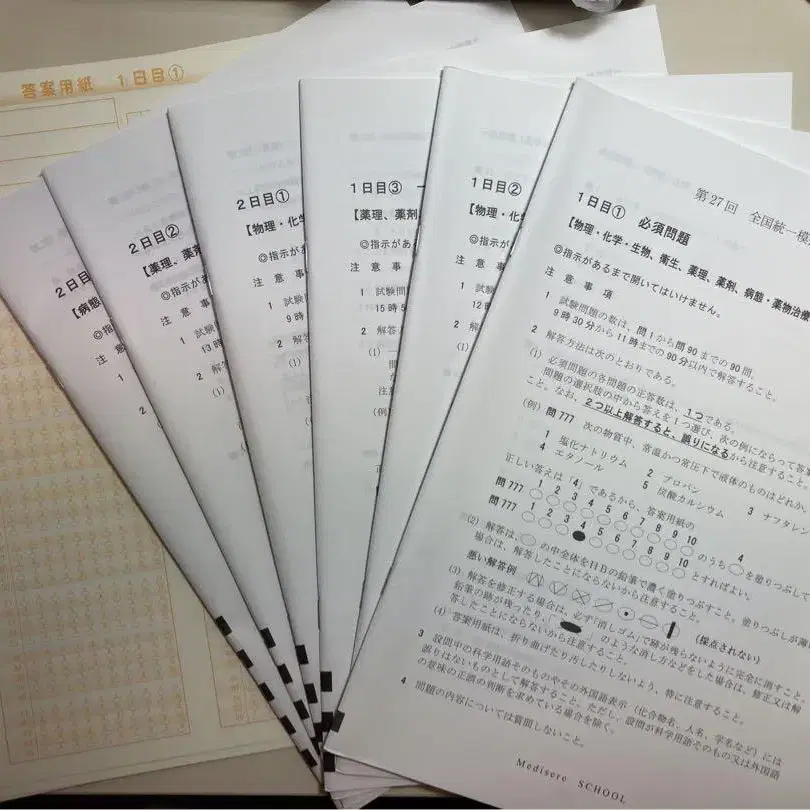 答案用紙 1日目①
2日目
【病態
◎指
注 意
1
2
2日目②
【薬理、薬剤
◎指示が
注 意 事
1 試験
13時
2 解答
(1)
2日目①
【物理・化
◎指示があ
注 意 事
1 試験
9時
2 解
(1)
1日目③
【薬理、薬剤
◎指示があ
注 意 事
1 試験問
15時5
2 解答
(1)
(例)
1日目②
【物理・化学
◎指示がある
注 意 事
1 試験
12時
2 解答
(1)
(例)
第27回 全国統一模
1日目① 必須問題
【物理・化学・生物、衛生、薬理、薬剤、病態・薬物治療
◎指示があるまで開いてはいけません。
注 意 事 項
1 試験問題の数は、問1から問90までの90問。
9時30分から11時までの90分以内で解答すること。
2 解答方法は次のとおりである。
(1) 必須問題の各問題の正答数は、1つである。
問題の選択肢の中から答えを1つ選び、次の例にならって答
こと。なお、2つ以上解答すると、誤りになるから注意すること。
(例) 問777 次の物質中、常温かつ常圧下で液体のものはどれか。
1 塩化ナトリウム 2 プロパン 3 ナフタレン
4 エタノール 5 炭酸カルシウム
正しい答えは「4」であるから、答案用紙の
問777 1 2 3 4 5 6 7 8 9 10 のうち 4 を塗りつぶして
問777 1 2 3 4 5 6 7 8 9 10 とすればよい。
(2) 解答は、 の中全体をHBの鉛筆で濃く塗りつぶすこと。塗りつぶしが薄い
場合は、解答したことにならないから注意すること。
悪い解答例 (採点されない)
(3) 解答を修正する場合は、必ず「消しゴム」で跡が残らないように完全に消すこと。
鉛筆の跡が残ったり、「 」のような消し方などをした場合は、修正又は解
答したことにならないから注意すること。
(4) 答案用紙は、折り曲げたり汚したりしないよう、特に注意すること。
3 設問中の科学用語そのものやその外国語表示(化合物名、人名、学名など)には
誤りはないものとして解答すること。ただし、設問が科学用語そのもの又は外国語
の意味の正誤の判断を求めている場合を除く。
4 問題の内容については質問しないこと。
Medisere SCHOOL